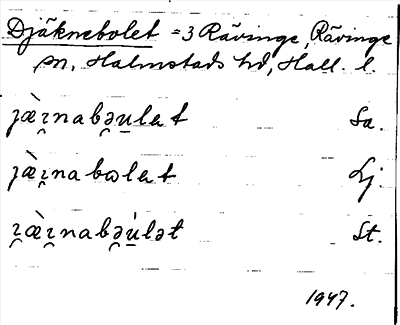 Djäknebolet = 3 Rävinge, Rävinge
sn, Halmstads hd, Hall. l.
ȷæ̀ɪ̯nabə̯u̠lat Sa.
ȷæ̀ɪ̯nabɷlat Lj.
ɪ̯æ̀ɪ̯nabə̯ú̠lət St.
1947.